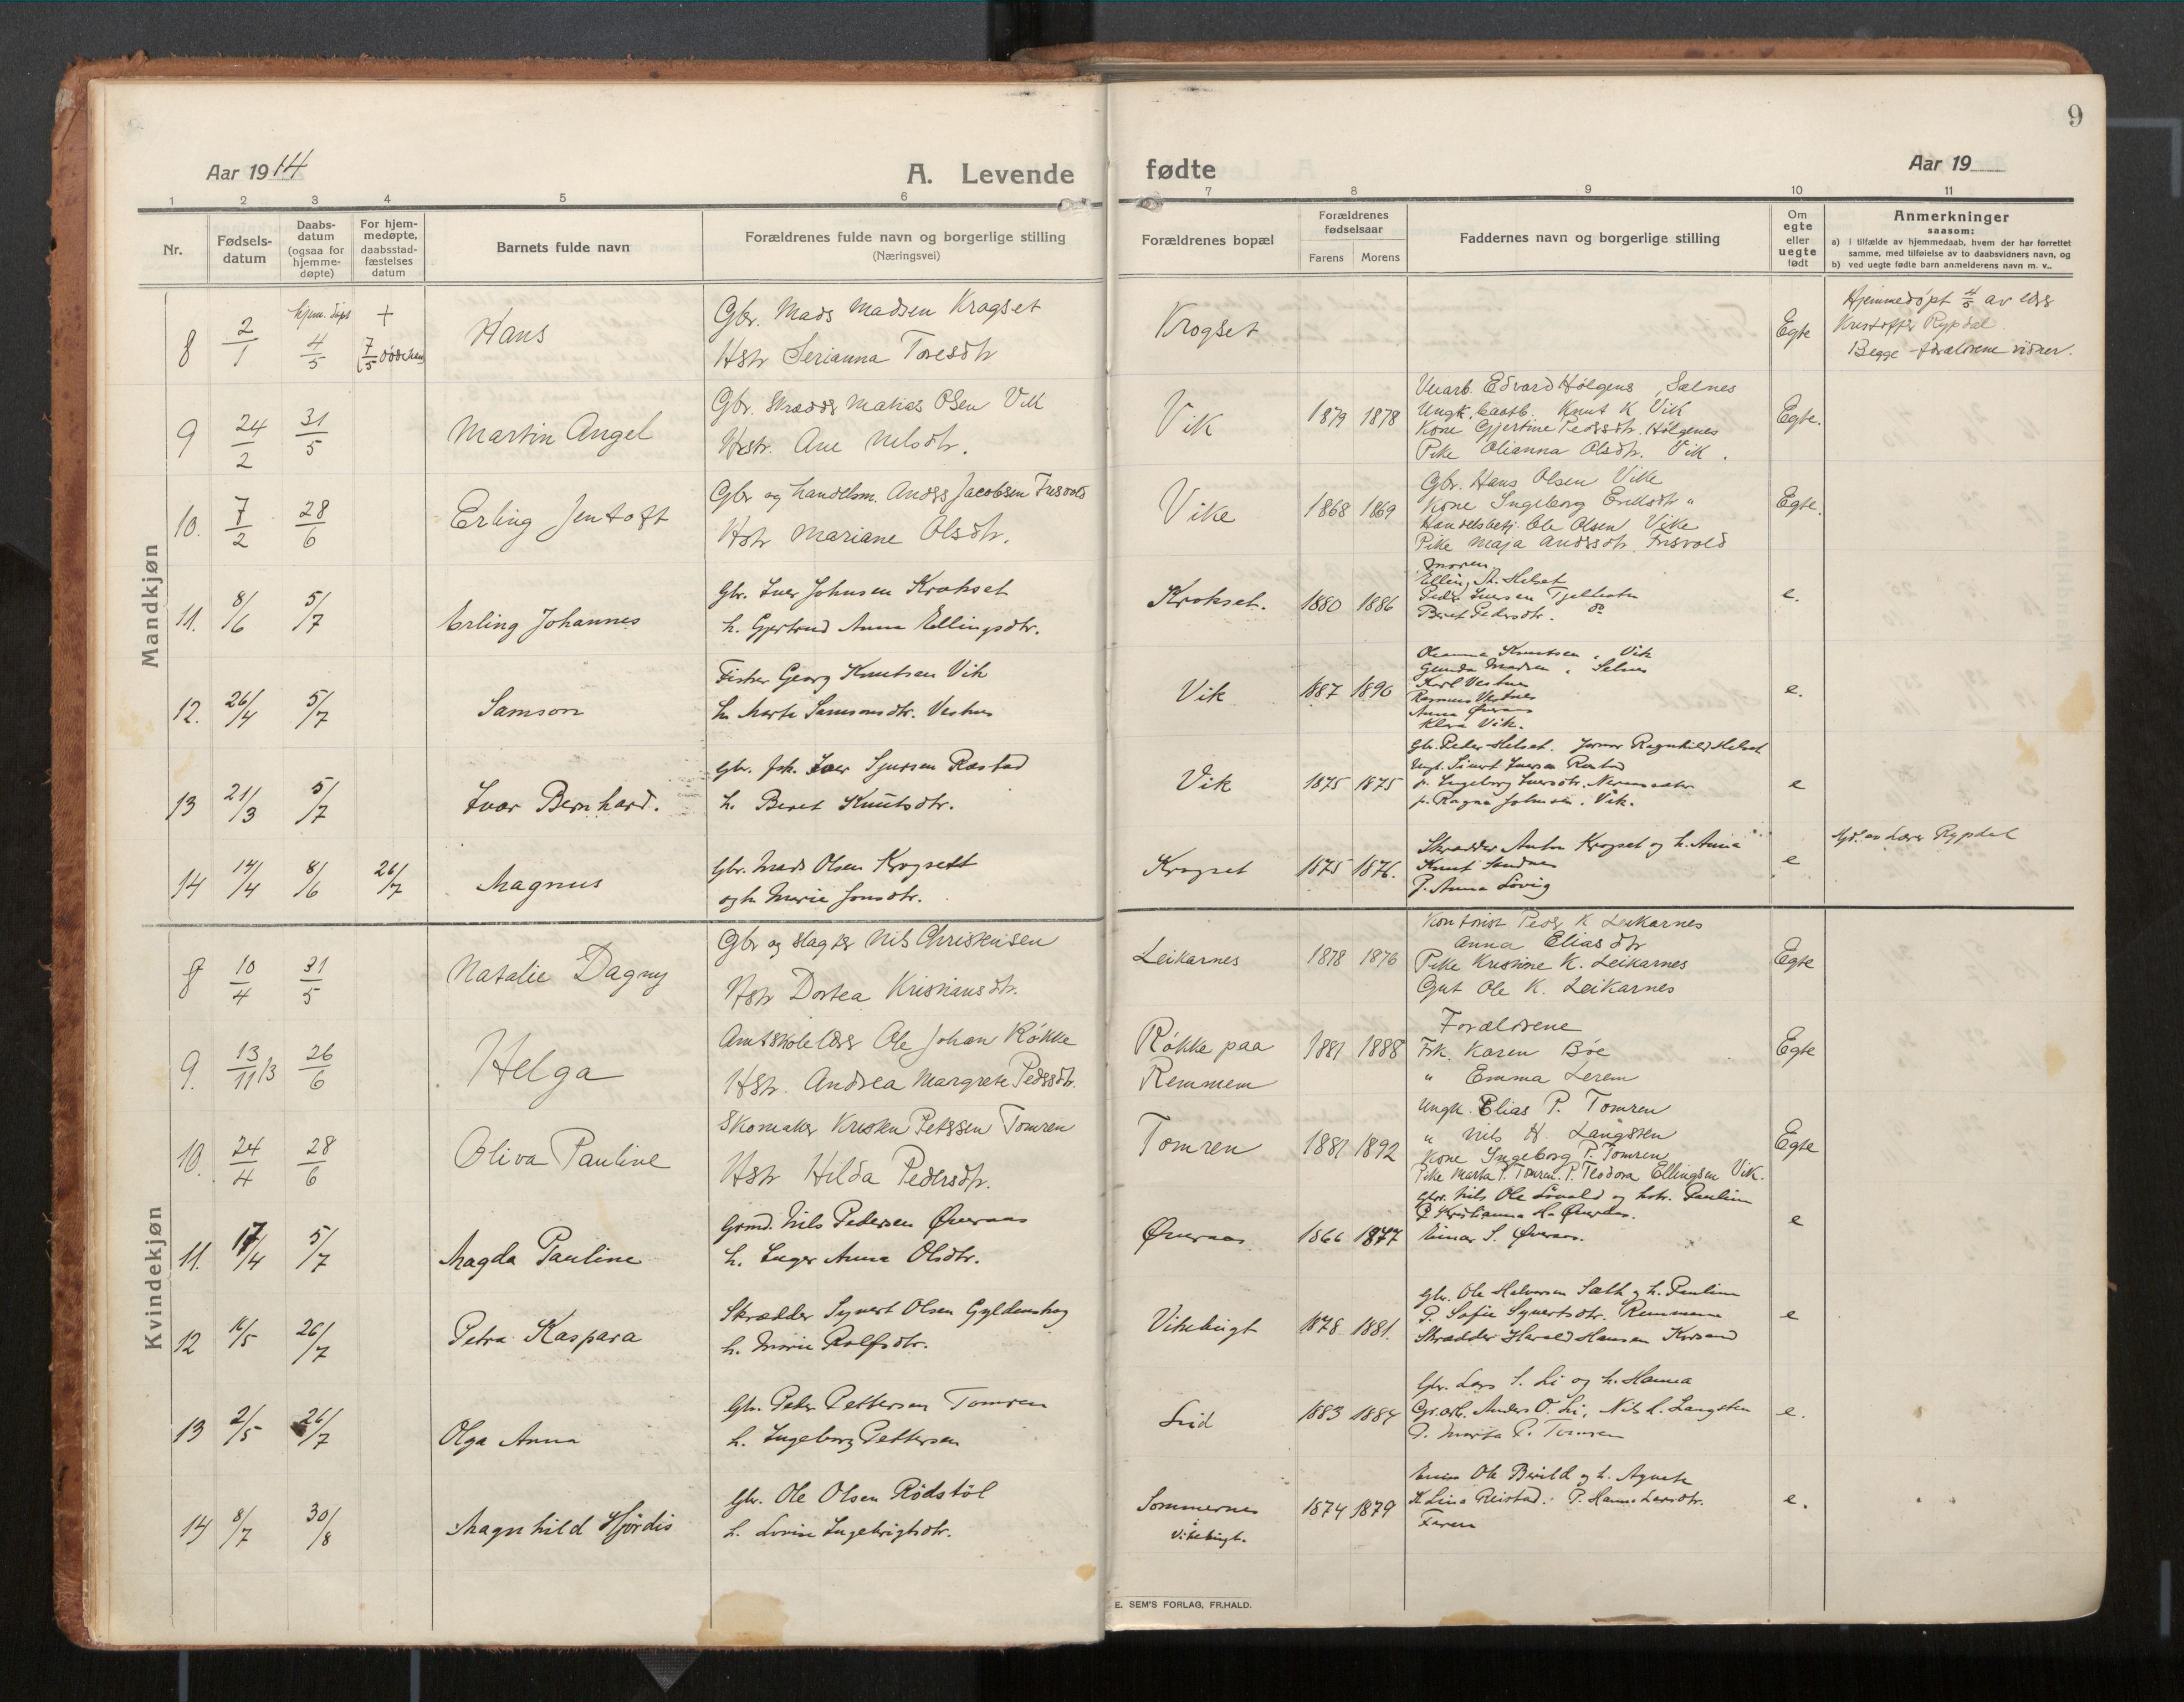 9
Aar 1914
A. Levende
fødte
Aar 19
1 2 3 4 5 6 7 8 9 10 11
Nr.
Fødselsdatum
Daabsdatum (ogsaa for hjemmedøpte)
For hjemmedøpte, daabsstadfæstelses datum
Barnets fulde navn
Forældrenes fulde navn og borgerlige stilling
(Næringsvei)
Forældrenes bopæl
Forældrenes fødselsaar
Farens Morens
Faddernes navn og borgerlige stilling
Om egte eller uegte født
Anmerkninger
saasom:
a) i tilfælde av hjemmedaab, hvem der har forrettet samme, med tilføielse av to daabsvidners navn, og
b) ved uegte fødte barn anmelderens navn m. v..
Mandkjøn
8 2/1 hjem. døpt 4/5 + 7/5 Hans
Gbr. Mads Madsen Krogset
Hstr Serianna Toresdtr
Krogset
Egte
Hjemmedøpt 4/5 av lærer
Kristoffer Rypdal
Begge forældrene vidner.
9 24/2 31/5 Martin Angel
Gbr. Skrædder Matias Olsen Vik
Hstr. Ane Nelsdtr.
Vik 1879 1878
Edvard Hølgenes, Sælnes
Ungk. Knut K Vik
Kone Gjertine Pedersdtr. Hølgenes
Pike Olianna Olsdtr. Vik.
Egte.
10. 7/2 28/6 Erling Jentoft
Gbr og handelsm. Anders Jacobsen Frisvold
Hstr Mariane Olsdtr.
Vike 1868 1869
Gbr. Hans Olsen Vike
Kone Ingeborg Eriksdtr "
Handelsbetj. Ole Olsen Vike
Pike Maja Andersdtr. Frisvold
Egte.
11. 8/6 5/7 Erling Johannes
Gbr. Iver Johnsen Krokset
h. Gjertrud Anna Ellingsdtr.
Krokset. 1880 1886
Moren
Elling A. Helset
Peder Iversen Tjelle
Beret Pedersdtr. do
e.
12. 26/4 5/7 Samson
Fisker Georg Knutsen Vik
h. Marta Samsonsdtr. Vestnes
Vik 1887 1890
Oleanna Knutsen, Vik
Gunda Madsen, Selnes
Karl Vestnes
Rasmus Vestnes
Anna Øveraas
Klara Vik.
e.
13 21/3 5/7 Ivar Bernhard.
Gbr. fsk. Iver Sjursen Rastad
h. Beret Knutsdtr.
Vik 1875 1875
Gbr. Peder Helset. Ragnhild Helset
Ungk. Sivert Iversen Rastad
p. Ingeborg Iversdtr.
p. Ragna Johnsen. Vik.
e
14 14/4 8/6 26/7 Magnus
Gbr. Mads Olsen Krogsett
og h. Marie Jonsdtr.
Krogset 1875 1876.
Skrædder Anton Krogset og h. Anna
Knut Sandnes
P. Anna Løvig
e
Hjd. av Lærer Rypdal
Kvindekjøn
8 10/4 31/5 Natalie Dagny
Gbr og slagter Nils Christensen
Hstr Dortea Kristiansdtr.
Leikarnes 1878 1876
Kontorist Peder K Leikarnes
Anna Eliasdtr
Pike Kristine K. Leikarnes
Gut Ole K. Leikarnes
Egte
9. 13/11 13 26/6 Helga
Amtskolelærer Ole Johan Røkke
Hstr. Andrea Margrete Pedersdtr.
Røkke paa
Remmem
1881 1888
Forældrene
Frk. Karen Bøe
" Emma Lerem
Egte
10. 24/4 28/6 Oliva Pauline
Skomaker Kristen Petersen Tomren
Hstr Hilda Pedersdtr.
Tomren 1881 1892
Ungk. Elias P. Tomren
" Nils H. Langseen
Kone Ingeborg P. Tomren
Pike Marta P. Tomren. P. Teodora Ellingsen Vik.
Egte
11. 17/4 5/7 Magda Pauline
Grmd. Nils Pedersen Øveraas
h. Inger Anna Olsdtr.
Øveraas 1866 1877
Gbr. Nils Ole Løvold og hstr. Pauline
P. Kristianna H. Øveraas.
Einar S. Øveraas.
e
12 16/5 26/7 Petra Kaspara
Skrædder Syvert Olsen Gyldenskog
h. Marie Rolfsdtr.
Vikebugt 1878 1881.
Gbr. Ole Halvorsen Sæth og h. Pauline
P. Sofie Syvertsdtr. Remmem
Skrædder Harald Hansen
e
13 2/5 26/7 Olga Anna
Gbr. Peter Pettersen Tomren
h. Ingeborg Pettersen
Lid 1883 1884
Gbr. Lars S. Li og h. Hanna
Gr.arb. Anders O. Li, Nils H. Langsten
P. Marta P. Tomren
e.
14 8/7 30/8 Magnhild Hjørdis
Gbr. Ole Olsen Rødstøl
h. Lovise Ingebrigtsdtr.
Sommernes
i
Vikebugt.
1874 1879
Ole Bivild og h. Agnete
K Lina Reistad. P. Hanna Larsdtr.
Faren
e.
E. SEM'S FORLAG, FR.HALD.